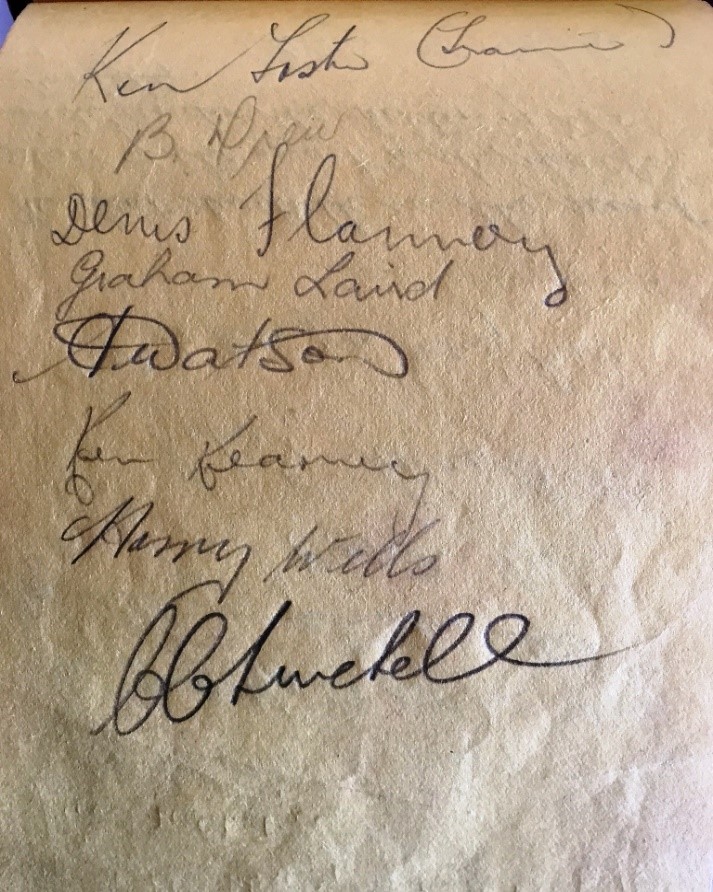 Ken Foster (Trainer)
B. Drew
Denis Flannery
Graham Laird
A Watson
Ken Kearney
Harry Wells